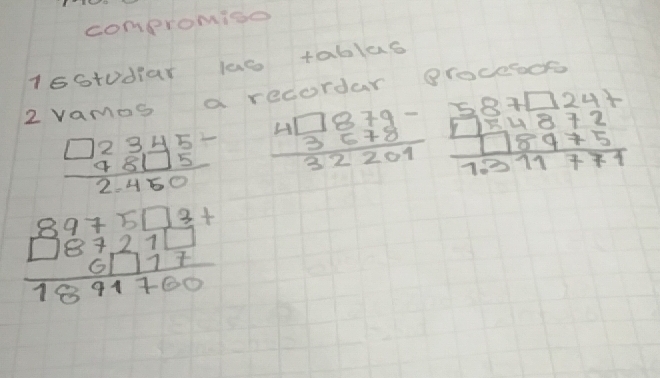 compromiso
1 Estudiar las tablas
2 vamos a recordar procesos
□2345-
98□5
2.450
4□879-
3578
32201
587□24+
□54872
□8975
1.311771
8975□3+
□8721□
6□17
1891760